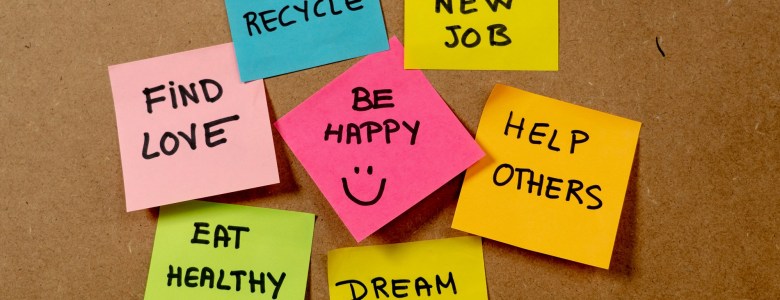 RECYCLE
NEW
JOB
FiND
LOVE
BE
HAPPY
HELP
OTHERS
EAT
HEALTHY
DREAM